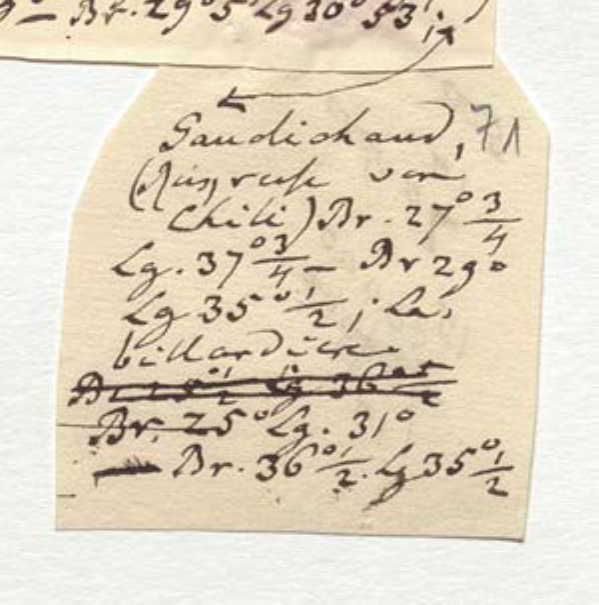 – Br. 29° 5' Lg 30° 53';
Gaudichaud, 71
(Hinreise von
Chili) Br. 27° 3/4
Lg. 37° 3/4 – Br 29°
Lg 35° 1/2; La,
billardière
Lg 36°
Br. 25° Lg. 31°
– Br. 36° 1/2. Lg 35° 1/2